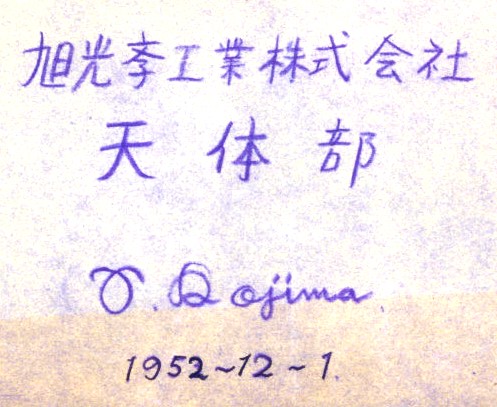 旭光斈工業株式会社
天体部
ojima
1952~12~1.